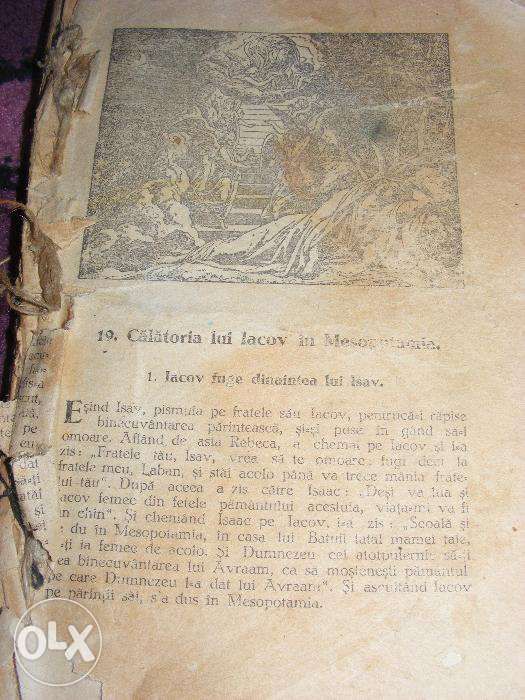 19. Călătoria lui Iacov în Mesopotamia.
1. Iacov fuge dinaintea lui Isav.
Eşind Isav, pismuia pe fratele său Iacov, pentrucă-i răpise
binecuvântarea părintească, şi-şi puse în gând să-l
omoare. Aflând de asta Rebeca, a chemat pe Iacov şi i-a
zis: „Fratele tău, Isav, vrea să te omoare; fugi deci la
fratele meu, Laban, şi stăi acolo până va trece mânia frate-
lui tău". După aceea a zis către Isaac: „Deşi va lua şi
acov femee din fetele pământului acestuia, viaţa-mi va fi
un chin". Şi chemând Isaac pe Iacov, i-a zis: „Scoală şi
du în Mesopotamia, în casa lui Batuil tatăl mamei tale,
ţi ia femee de acolo. Şi Dumnezeu cel atotputernic să-ţi
ea binecuvântarea lui Avraam, ca să moşteneşti pământul
pe care Dumnezeu l-a dat lui Avraam". Şi ascultând Iacov
pe părinţii săi, s-a dus în Mesopotamia.
OLX